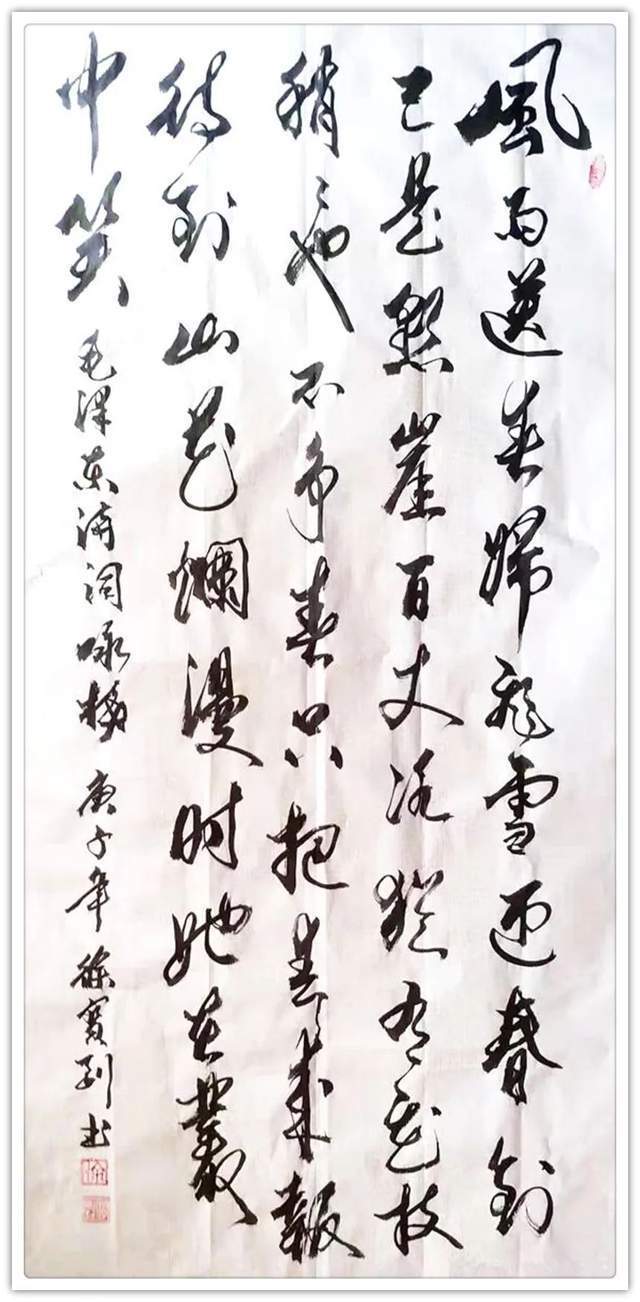 風雨送春歸飛雪迎春到
已是懸崖百丈冰猶有花枝
稍〻也不争春只把春來報
待到山花爛漫时她在叢
中笑 毛澤东诗词咏梅 庚子年 徐寶列书